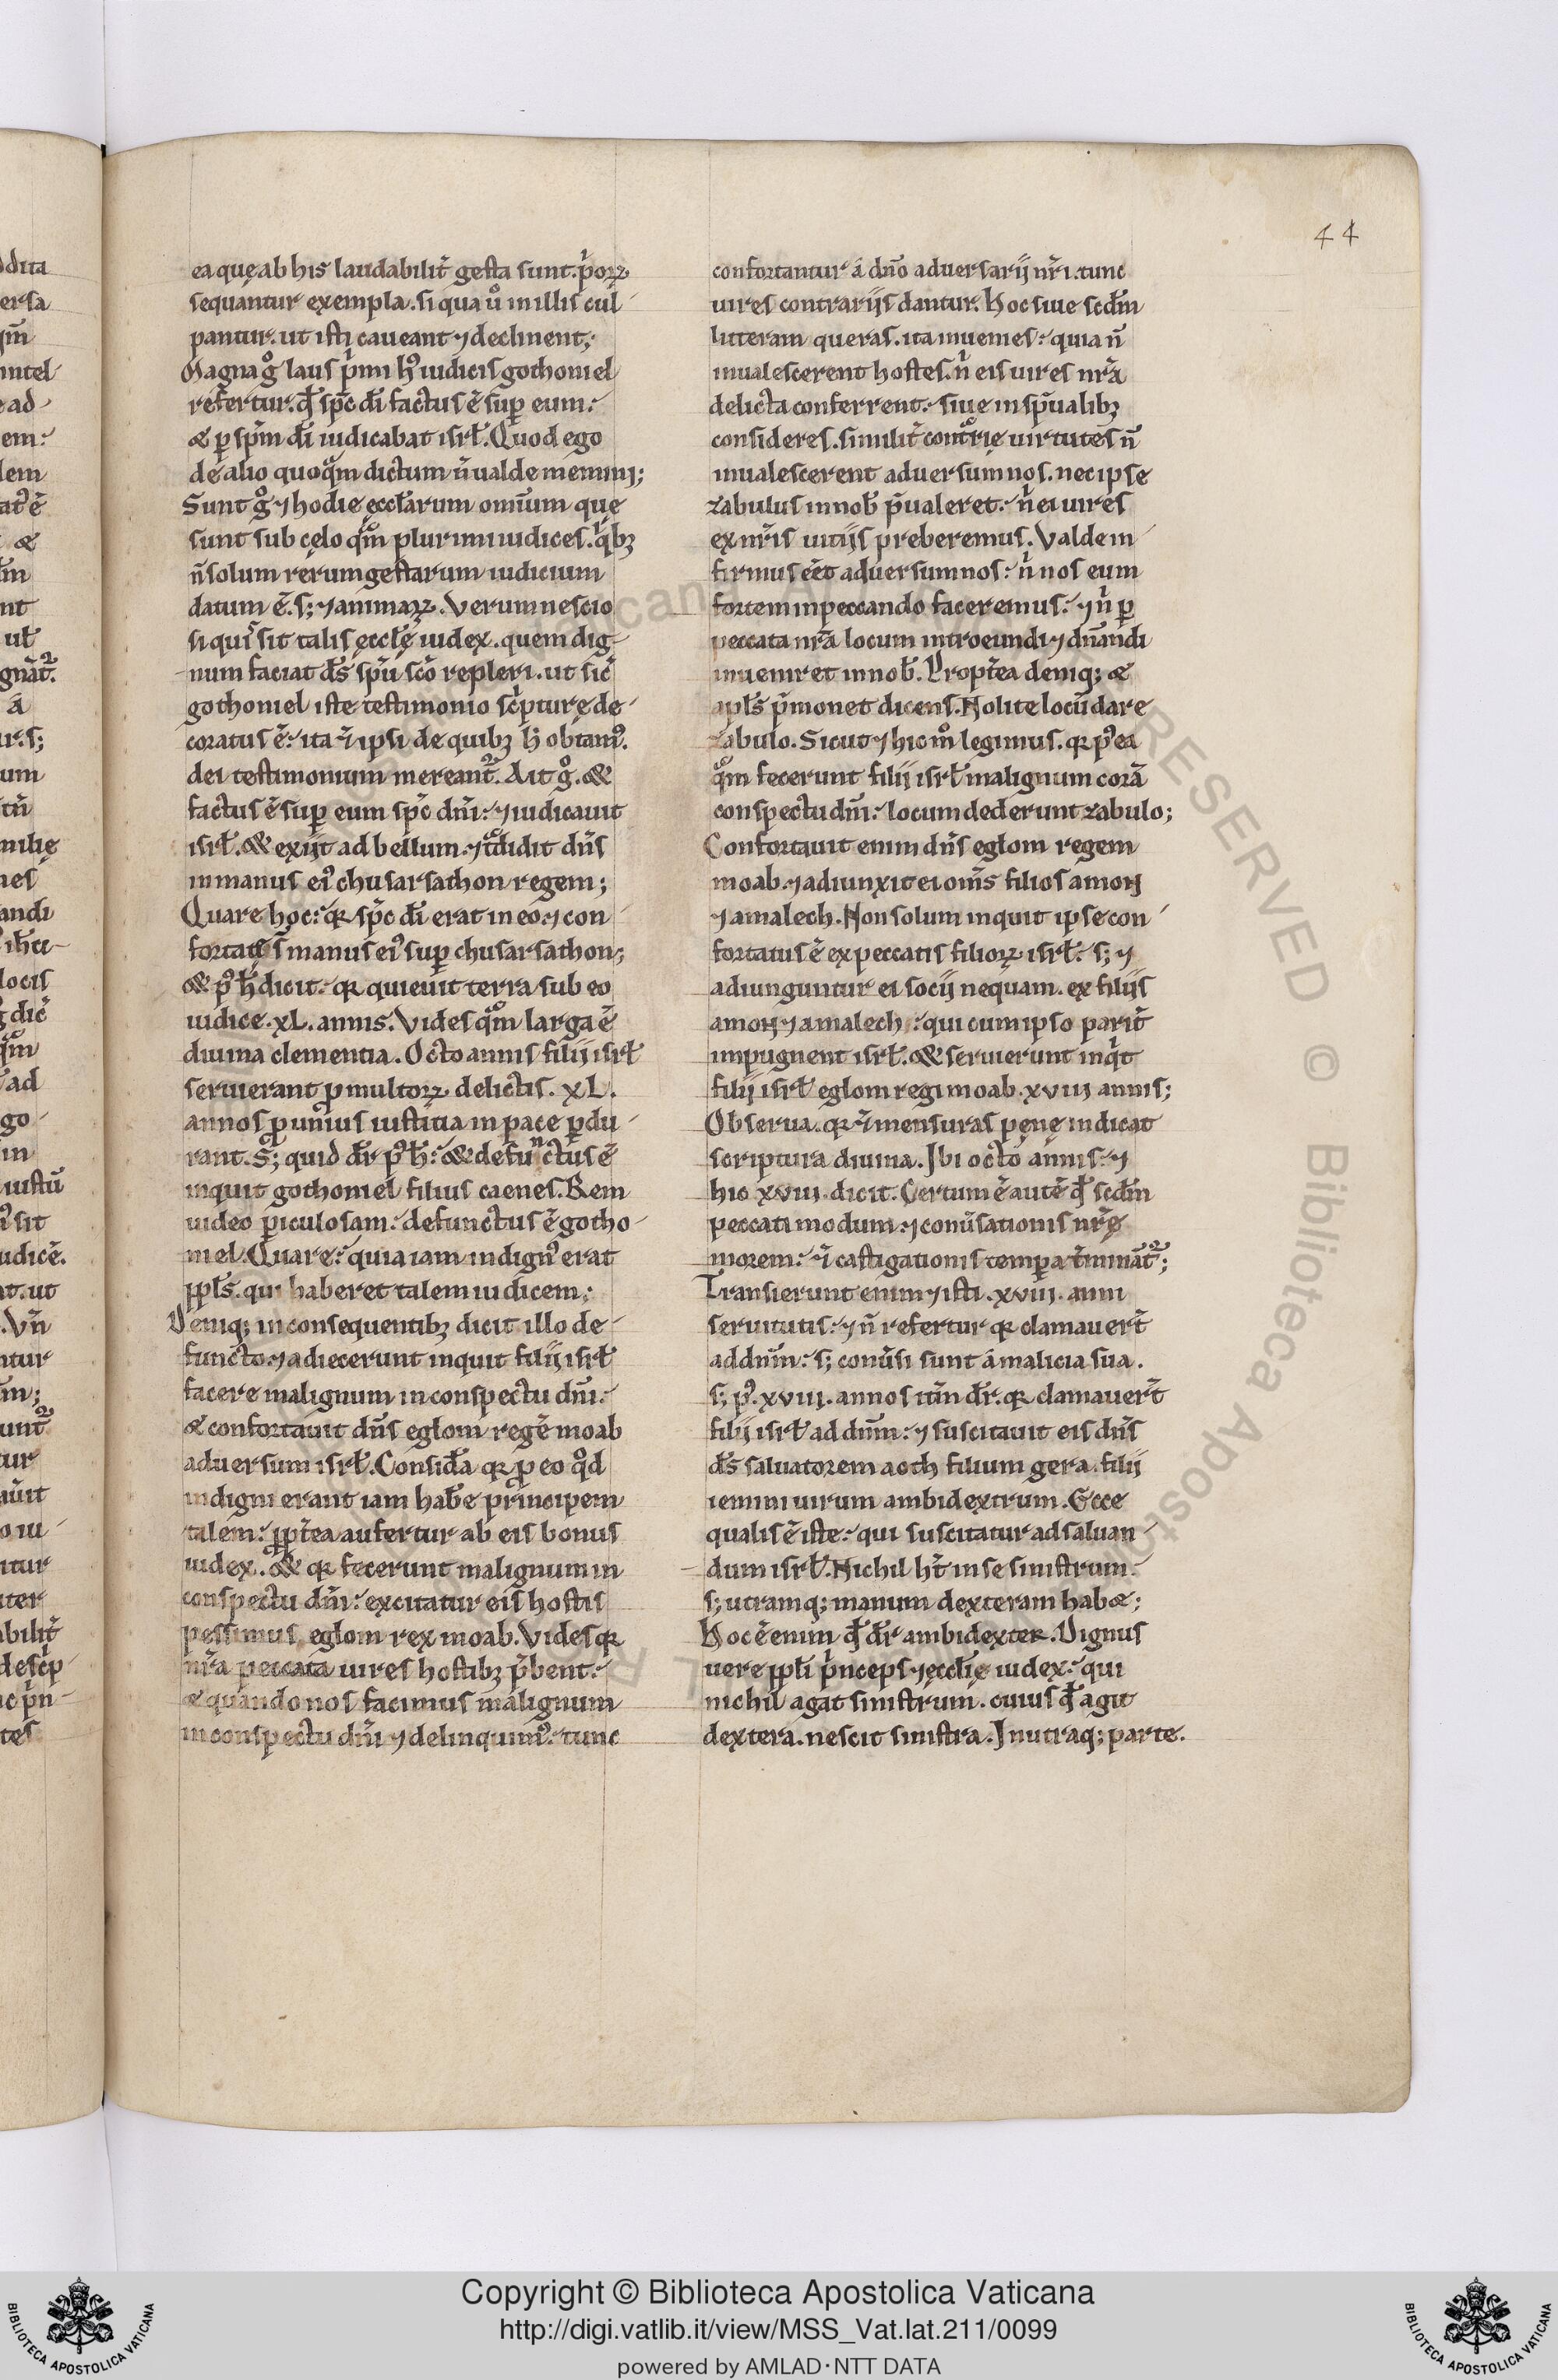 44
ea quę ab his laudabilit̃ gesta sunt. p̍oꝝ
sequantur exempla. si qua ů in illis cul-
pantur. ut isti caueant ⁊ declinent;
Magna g̊ laus p̍mi hꝰ iudicis gothoniel
refertur. qđ sp̄c dī factus ē suꝑ eum.
& ꝑ sp̄m dī iudicabat isrł. Quod ego
de alio quoq̊m dictum ñ ualde meminj;
Sunt g̊ ⁊ hodie ęccłarum omīum quę
sunt sub cęlo q̊m plurimi iudices. q̍bꝫ
ñ solum rerum gestarum iudicium
datum ē. s; ⁊ animaꝝ. Verum nescio
si quis sit talis ęccłę iudex. quem dig-
num faciat d̄s sp̄u sc̄o repleri. ut sic̄
gothoniel iste testimonio sc̍pturę de-
coratus ē. ita ⁊̄ ipsi de quibꝫ ħ obtamꝰ.
dei testimonium mereant᷑. Ait g̊. &
factus ē suꝑ eum sp̄c dñi. ⁊ iudicauit
isrł. & exijt ad bellum. ⁊ t̾didit dñs
in manus eiꝰ chusarsathon regem;
Quare hoc: qꝛ sp̄c dī erat in eo. ⁊ con-
fortatę s̄ manus eiꝰ suꝑ chusarsathon;
& pꝰ ħ dicit. qꝛ quieuit terra sub eo
iudice. xL. annis. Vides q̊m larga ē
diuina clementia. Octo annis filij isrł
seruierant ꝓ multoꝝ delictis. xL.
annos ꝓ unius iustitia in pace ꝑdu-
rant. S; quid dr̄ pꝰ ħ: & defunctus ē
inquit gothoniel filius caenes. Rem
uideo ꝑiculosam. defunctus ē gotho-
niel. Quare: quia iam indignꝰ erat
ppłs. qui haberet talem iudicem.
Deniq; in consequentibꝫ dicit illo de-
functo. ⁊ adiecerunt inquit filij isrł
facere malignum in conspectu dñi.
& confortauit dñs eglom regē moab
aduersum isrł. Consid̾a qꝛ ꝓ eo q̊d
indigni erant iam hab̄e principem
talem. ꝓpt̾ea aufertur ab eis bonus
iudex. & qꝛ fecerunt malignum in
conspectu dñi. excitatur eis hostis
pessimus eglom rex moab. Vides qꝛ
nr̄a peccata uires hostibꝫ p̄bent.
& quando nos facimus malignum
in conspectu dñi ⁊ delinquimꝰ. tunc
confortantur á dño aduersarij nr̄i. tunc
uires contrarijs dantur. Hoc siue scđm
litteram queras. ita inuenies. quia ñ
inualescerent hostes. n̍ eis uires nr̄a
delicta conferrent. siue in sp̄ualibꝫ
consideres. similit̃ cont̾rię uirtutes ñ
inualescerent aduersum nos. nec ipse
zabulus in nob̄ p̄ualeret. n̍ ei uires
ex nr̄is uitijs preberemus. Valde in-
firmus eēt aduersum nos. n̍ nos eum
fortem in peccando faceremus. ⁊ n̍ ꝑ
peccata nr̄a locum introeundi ⁊ dn̄andi
inueniret in nob̄. Propt̾ea deniq; &
apłs p̄monet dicens. Nolite locū dare
zabulo. Sicut ⁊ hic m̊ legimus. qꝛ pꝰea
q̊m fecerunt filij isrł malignum corā
conspectu dñi. locum dederunt zabulo;
Confortauit enim dñs eglom regem
moab. ⁊ adiunxit ei om̄s filios amon
⁊ amalech. Non solum inquit ipse con-
fortatus ē ex peccatis filioꝝ isrł. s; ⁊
adiunguntur ei socij nequam. ex filijs
amon ⁊ amalech. qui cum ipso parit̃
impugnent isrł. & seruierunt inq̍t
filij isrł eglom regi moab. xviij annis;
Obserua. qꝛ ⁊̄ mensuras penę indicat
scriptura diuina. Ibi octo annis. ⁊
hic xviij. dicit. Certum ē autē qđ scđm
peccati modum. ⁊ conũsationis nr̄ę
morem. ⁊̄ castigationis tempora t̾minātꝛ̄;
Transierunt enim ⁊ isti. xviij. anni
seruitutis. ⁊ ñ refertur qꝛ clamauer̄t
ad dñm. s; conũsi sunt á malicia sua.
s; pꝰ. xviij. annos itm̄ dr̄. qꝛ clamauer̄t
filij isrł ad dñm. ⁊ suscitauit eis dñs
d̄s saluatorem aoth filium gera. filij
iemini uirum ambidextrum. Ecce
qualis ē iste. qui suscitatur ad saluan-
dum isrł. Nichil ht̄ in se sinistrum.
s; utramq; manum dexteram hab&;
Hoc ē enim qđ dr̄ ambidexter. Dignus
uere ppłi p̍nceps ⁊ ęccłię iudex. qui
nichil agat sinistrum. cuius qđ agit
dextera. nescit sinistra. In utraq; parte.
Copyright © Biblioteca Apostolica Vaticana
http://digi.vatlib.it/view/MSS_Vat.lat.211/0099
powered by AMLAD·NTT DATA
BIBLIOTECA APOSTOLICA VATICANA
BIBLIOTECA APOSTOLICA VATICANA